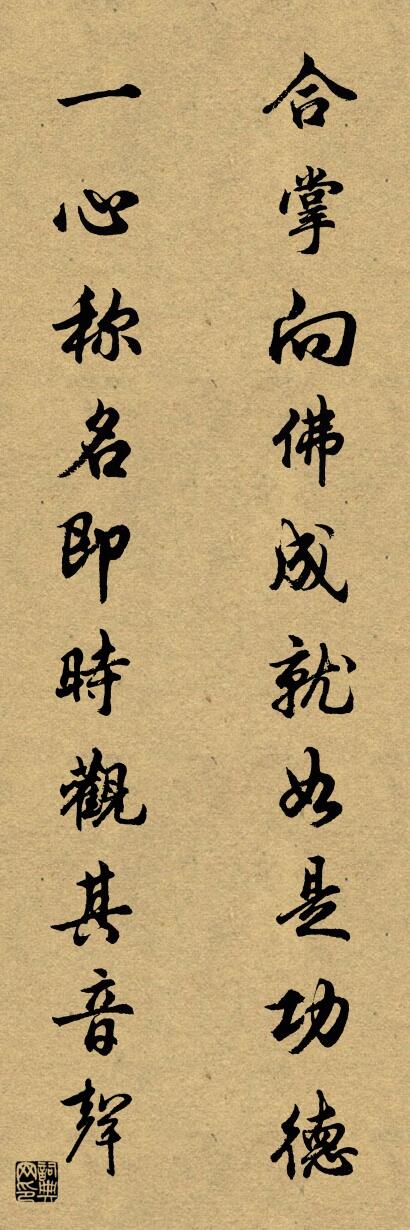 合掌向佛成就如是功德
一心称名即時觀其音聲
詞典网印